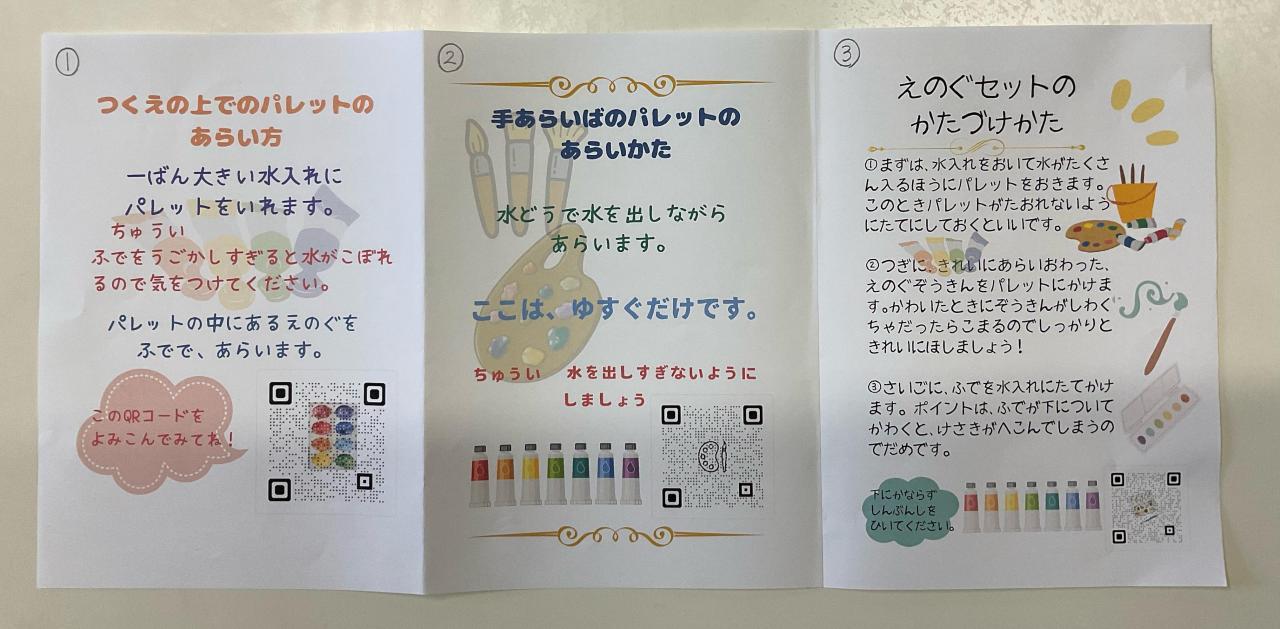 ①
つくえの上でのパレットの
あらい方
一ばん大きい水入れに
パレットをいれます。
ちゅうい
ふでをうごかしすぎると水がこぼれ
るので気をつけてください。
パレットの中にあるえのぐを
ふでで、あらいます。
このQRコードを
よみこんでみてね!
②
手あらいばのパレットの
あらいかた
水どうで水を出しながら
あらいます。
ここは、ゆすぐだけです。
ちゅうい 水を出しすぎないように
しましょう
③
えのぐセットの
かたづけかた
①まずは、水入れをおいて水がたくさ
ん入るほうにパレットをおきます。
このときパレットがたおれないよう
にたてにしておくといいです。
②つぎに、きれいにあらいおわった、
えのぐぞうきんをパレットにかけま
す。かわいたときにぞうきんがしわく
ちゃだったらこまるのでしっかりと
きれいにほしましょう!
③さいごに、ふでを水入れにたてかけ
ます。ポイントは、ふでが下について
かわくと、けさきがへこんでしまうの
でだめです。
下にかならず
しんぶんしを
ひいてください。